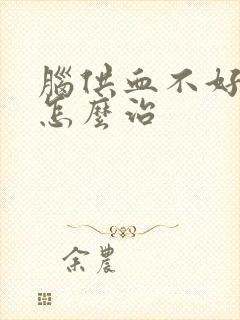 腦供血不好
怎麼治
余農